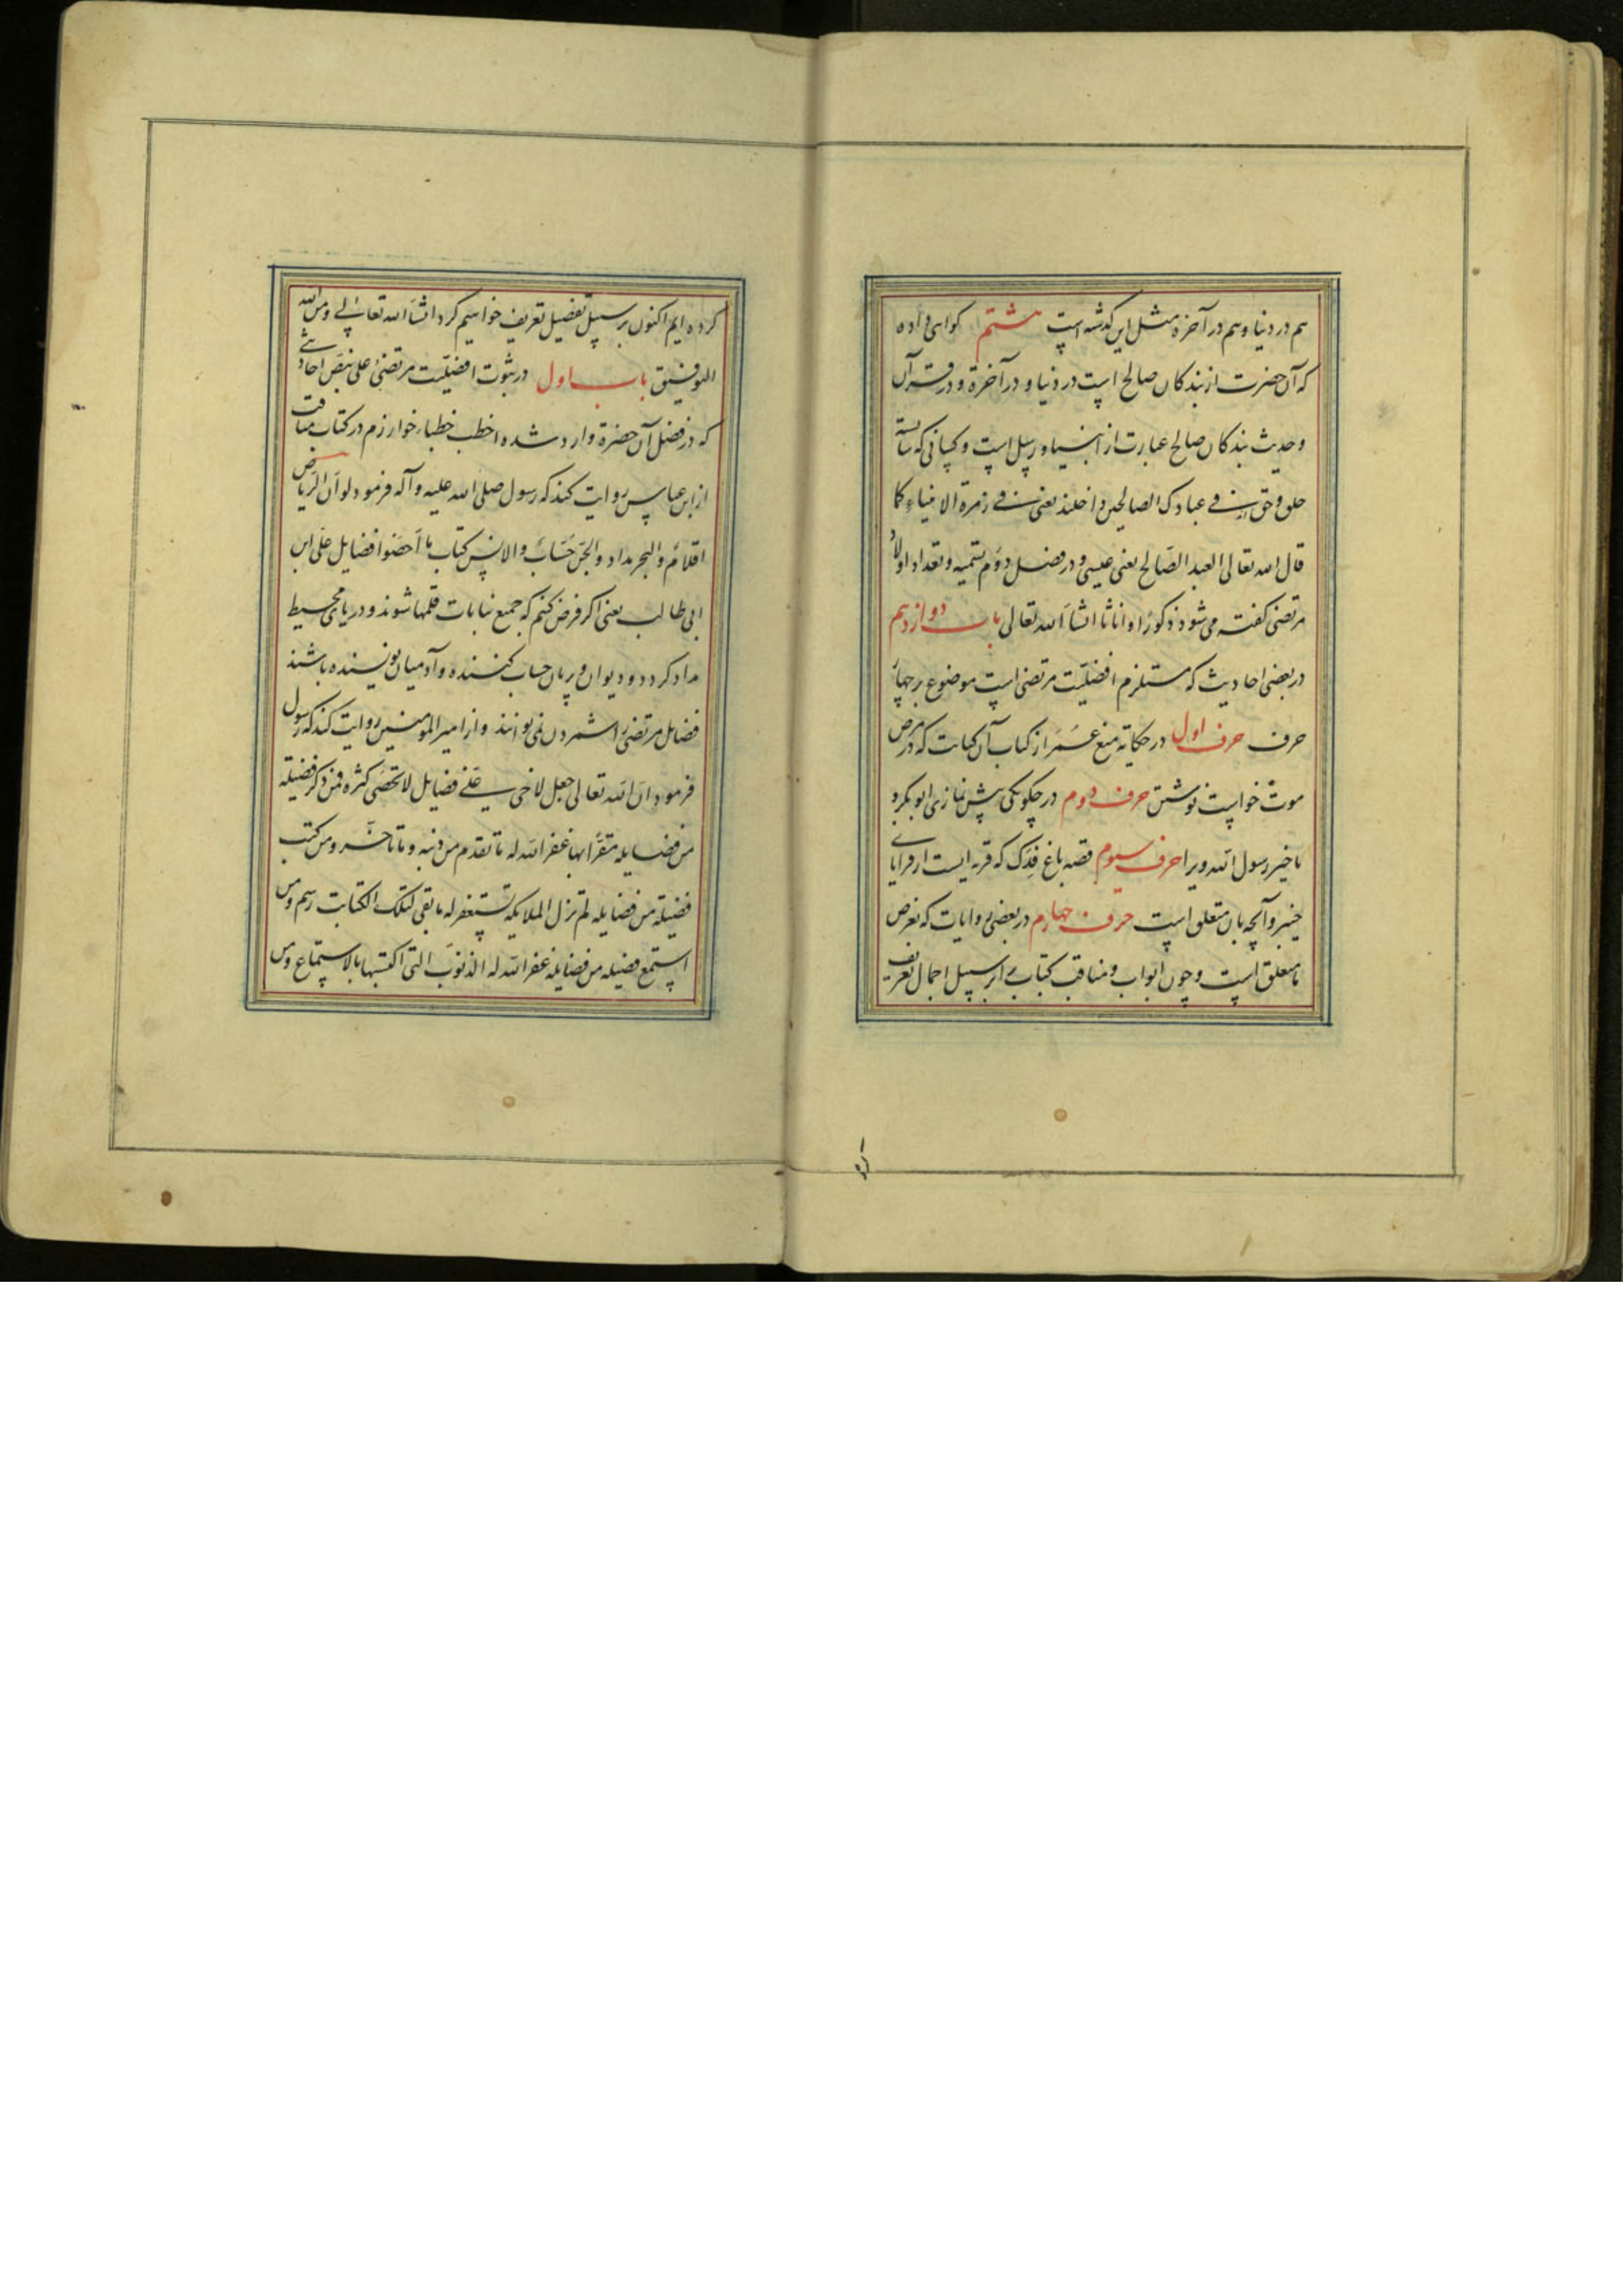 هم در دنیا و هم در آخرة مثل این کدشه است هشتم کواهی داده
که آن حضرت از بندکان صالح است در دنیا و در آخرة و در قرآن
و حدیث بندکان صالح عبارت از انبیا و رسل است و کسانی که
فی عبادک الصالحین داخلند یعنی فی زمرة الانبیاء کما
قال الله تعالی العبد الصالح یعنی عیسی و در فصل دوم تسمیه و تعداد اولاد
مرتضی کفته می شود ذکورا و اناثا انشآ الله تعالی باب دوازدهم
در بعضی احادیث که مستلزم افضلیت مرتضی است موضوع بر چهار
حرف حرف اول در حکایة منع عمر از کتاب آن کتابت که در مرض
موت خواست نوشتن حرف دوم در چکونکی پیش نمازی ابو بکر و
تاخیر رسول الله ویرا حرف سیوم قصه باغ فدک که قریه ایست از قرایای
خیبر و آنچه بان متعلق است حرف چهارم در بعضی روایات که بغرض
ما متعلق است و چون ابواب و مناقب کتاب بر سبیل اجمال تعریف
کرده ایم اکنون بر سبیل تفصیل تعریف خواهیم کرد انشآ الله تعالی و من الله
التوفیق باب اول در ثبوت افضلیت مرتضی علی بنص احادیثی
که در فضل آن حضرة وارد شده اخطب خطباء خوارزم در کتاب مناقب
از ابن عباس روایت کند که رسول صلی الله علیه و آله فرمود لو ان الریاض
اقلام و البحر مداد و الجن حساب و الانس کتاب ما احصوا فضایل علی ابن
ابی طالب یعنی اکر فرض کنم که جمیع نباتات قلمها شوند و دریای محیط
مداد کردد و دیوان و پریان حساب کننده و آدمیان نویسنده باشند
فضایل مرتضی را شمردن نمی توانند و از امیر المومنین روایت کند که رسول
فرمود ان الله تعالی جعل لاخی علی فضایل لا تحصی کثرة فمن ذکر فضیلة
من فضایله مقرا بها غفر الله له ما تقدم من ذنبه و ما تاخر و من کتب
فضیلة من فضایله لم تزل الملایکة تستغفر له ما بقی لتلک الکتابت رسم و من
استمع فضیله من فضایله غفر الله له الذنوب التی اکتسبها بالاستماع و من